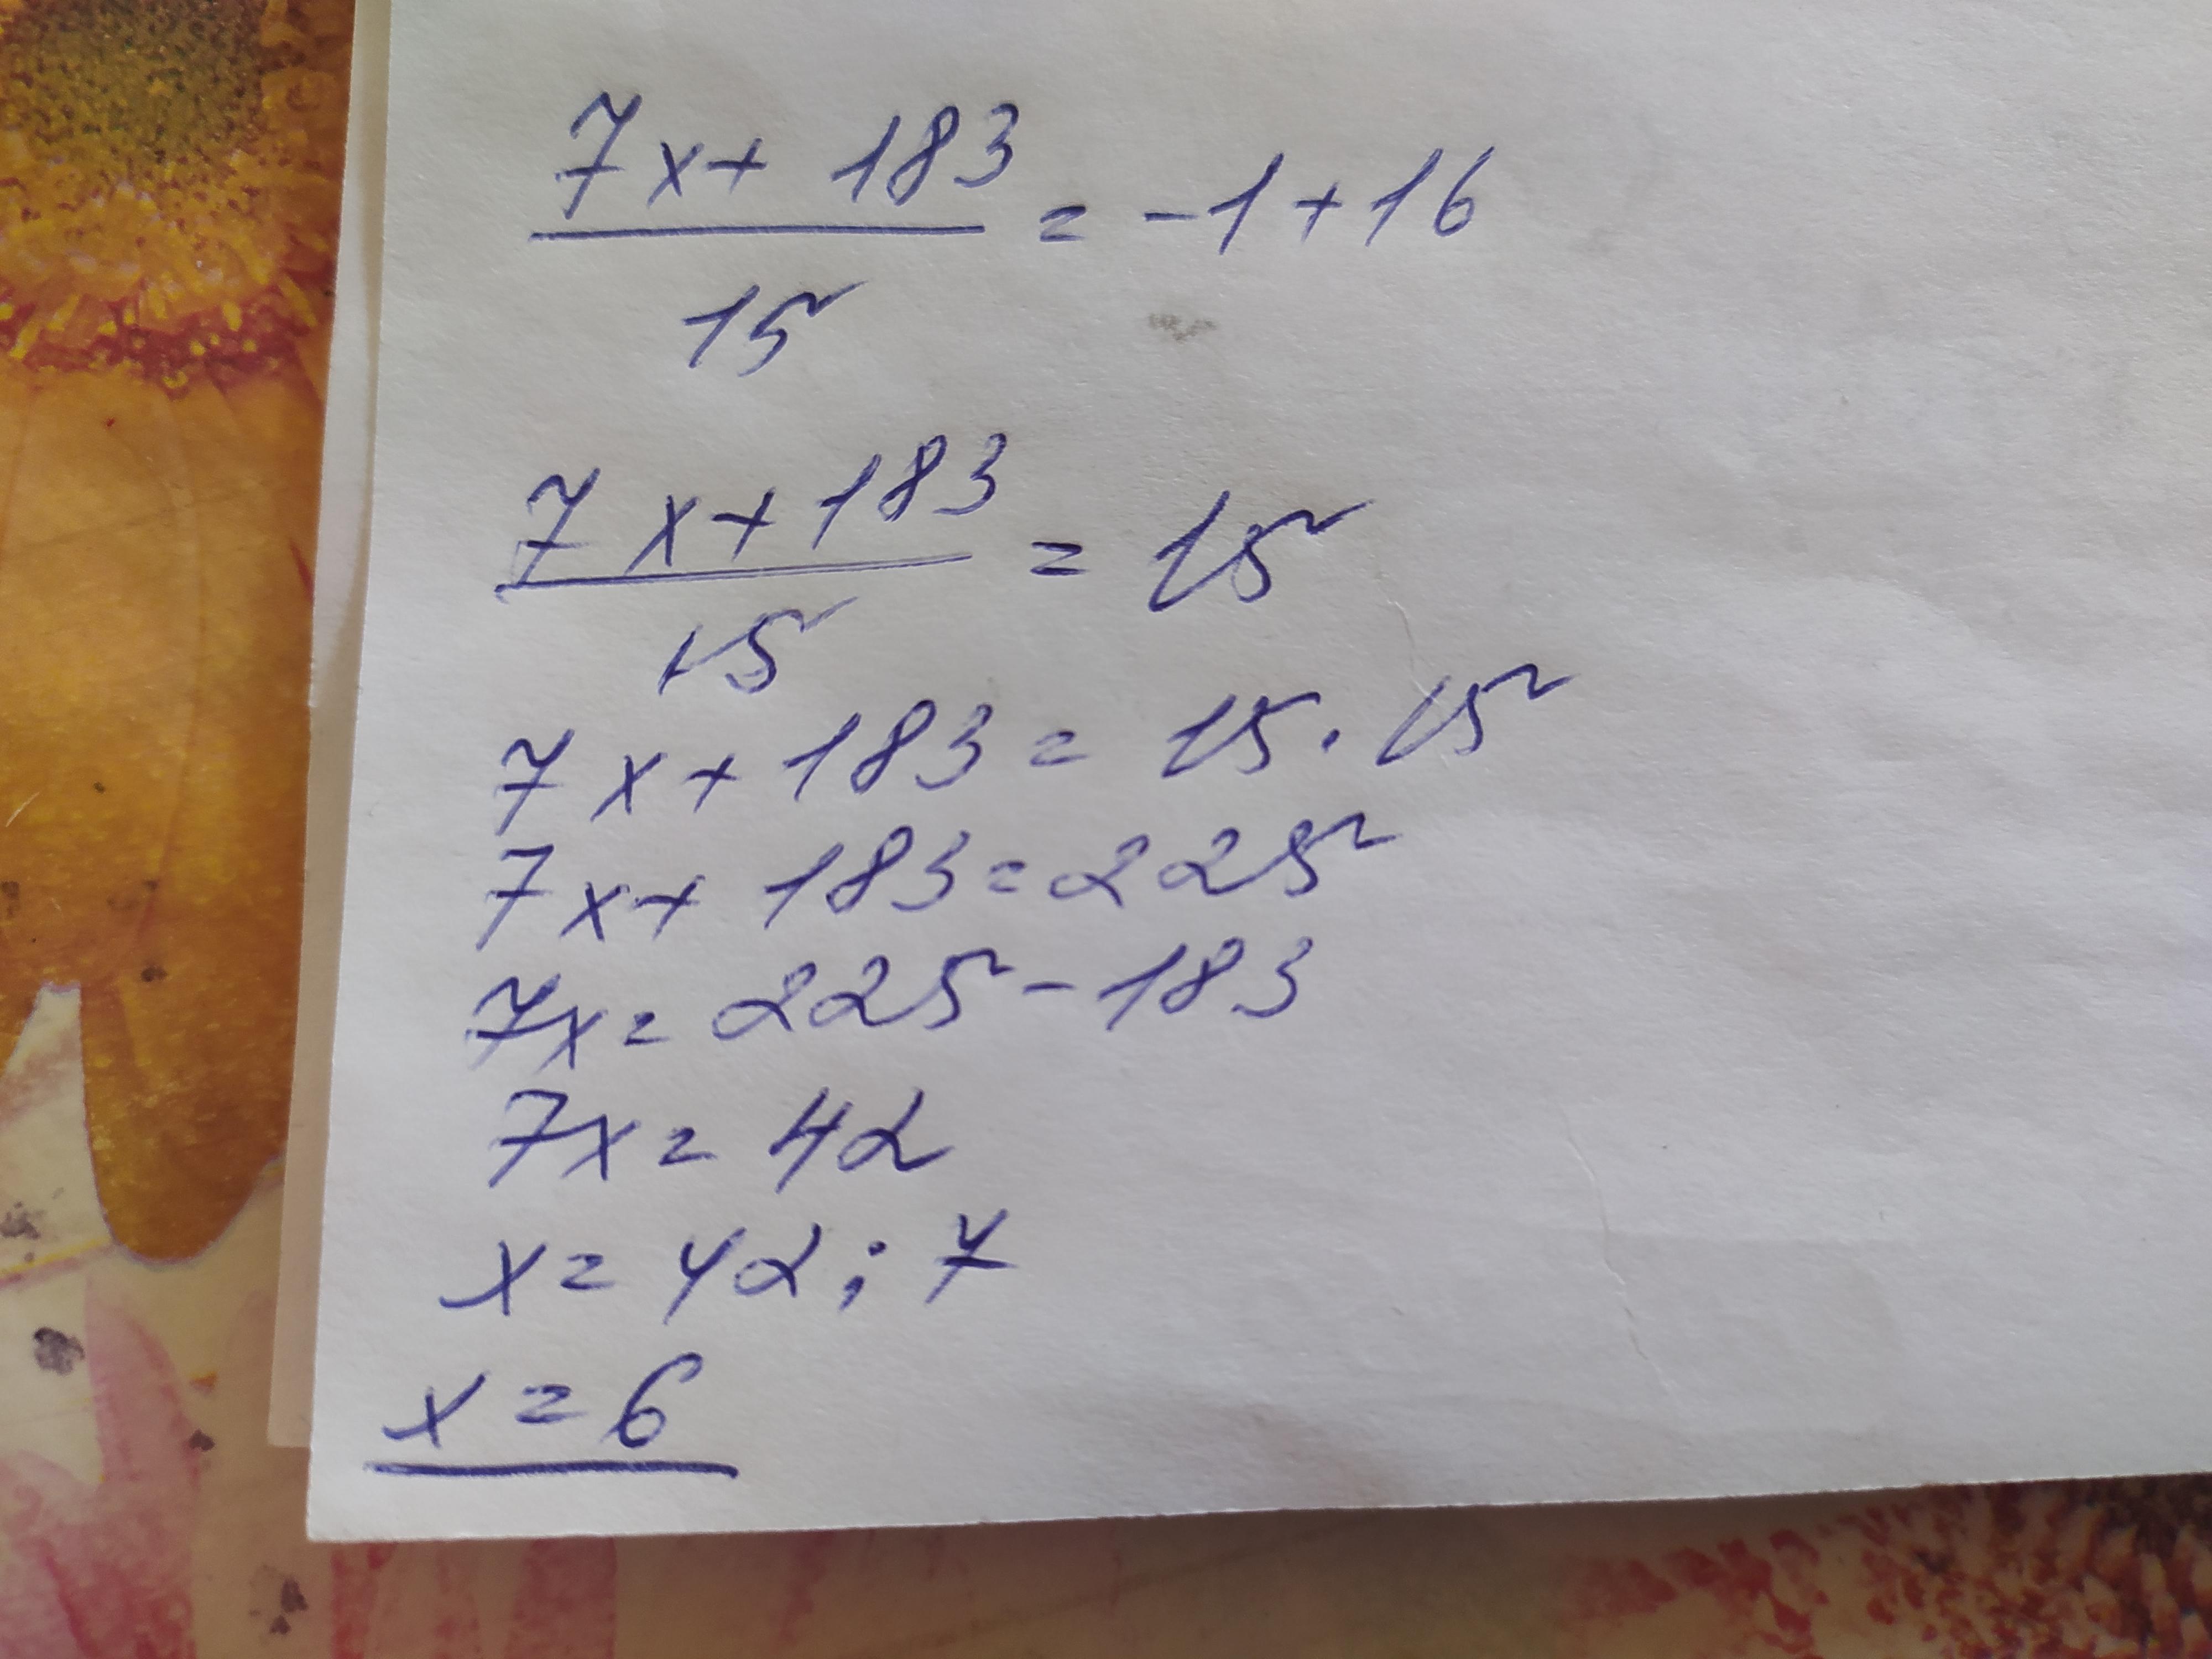 7x+ 183 / 15 = -1+16
7x+183 / 15 = 15
7x+183= 15·15
7x+ 183=225
7x= 225-183
7x= 42
x= 42:7
x=6